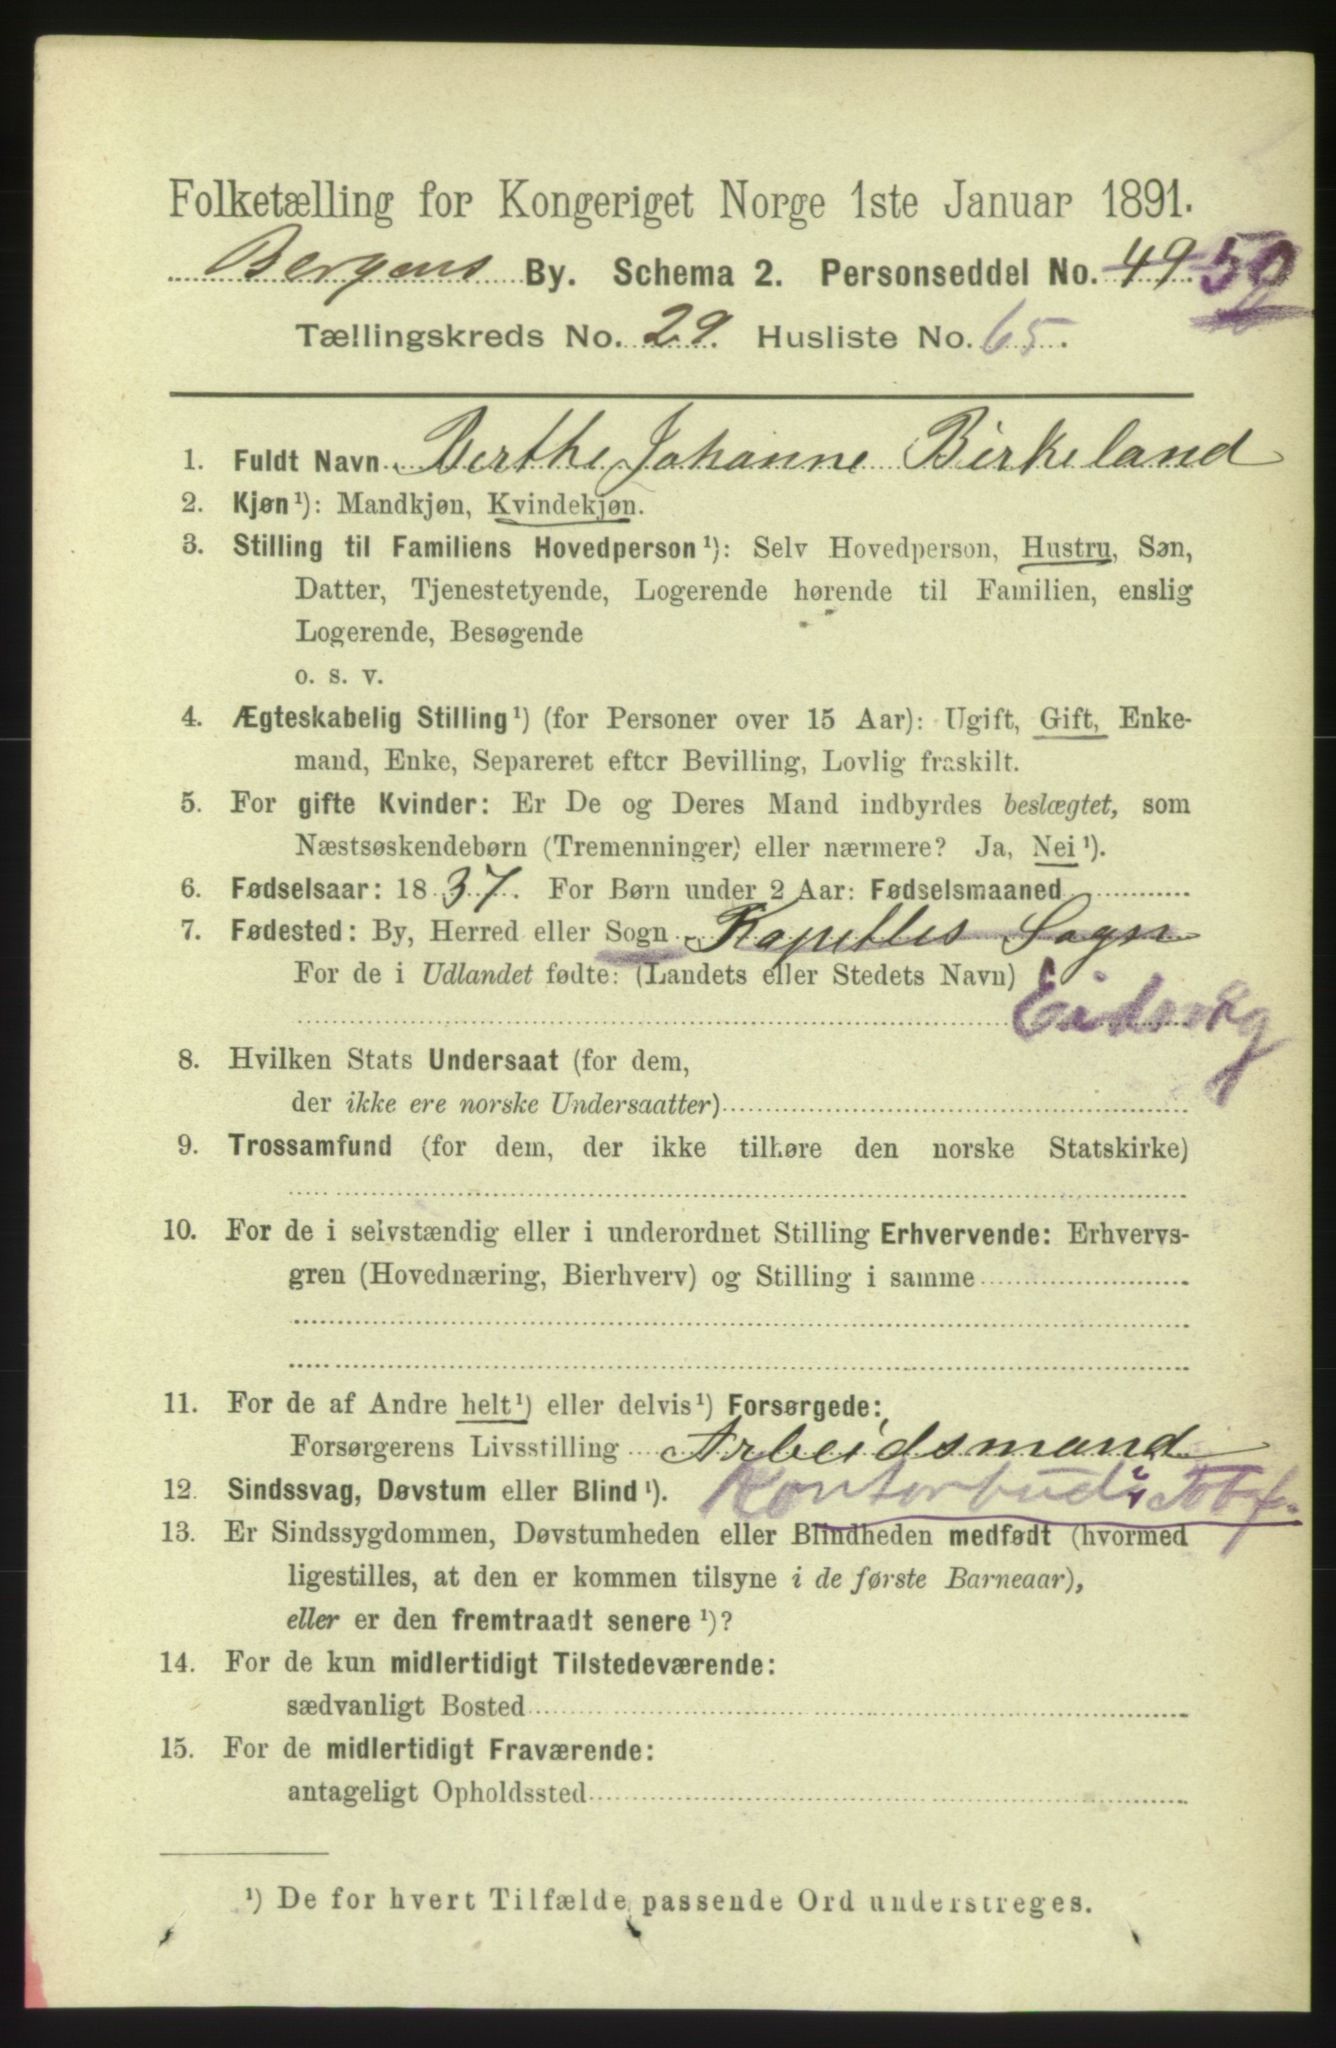 Folketælling for Kongeriget Norge 1ste Januar 1891.
Bergens By. Schema 2. Personseddel No. 49 50
Tællingskreds No. 29. Husliste No. 65.
1. Fuldt Navn Berthe Johanne Birkeland
2. Kjøn ¹): Mandkjøn, Kvindekjøn.
3. Stilling til Familiens Hovedperson ¹): Selv Hovedperson, Hustru, Søn,
Datter, Tjenestetyende, Logerende hørende til Familien, enslig
Logerende, Besøgende
o. s. v.
4. Ægteskabelig Stilling ¹) (for Personer over 15 Aar): Ugift, Gift, Enke-
mand, Enke, Separeret efter Bevilling, Lovlig fraskilt.
5. For gifte Kvinder: Er De og Deres Mand indbyrdes beslægtet, som
Næstsøskendebørn (Tremenninger) eller nærmere? Ja, Nei ¹).
6. Fødselsaar: 1837. For Børn under 2 Aar: Fødselsmaaned
7. Fødested: By, Herred eller Sogn Kapetles Sogn
For de i Udlandet fødte: (Landets eller Stedets Navn)
Eidsvåg
8. Hvilken Stats Undersaat (for dem,
der ikke ere norske Undersaatter)
9. Trossamfund (for dem, der ikke tilhøre den norske Statskirke)
10. For de i selvstændig eller i underordnet Stilling Erhvervende: Erhvervs-
gren (Hovednæring, Bierhverv) og Stilling i samme
11. For de af Andre helt ¹) eller delvis ¹) Forsørgede:
Forsørgerens Livsstilling Arbeidsmand
Kontorbud i
12. Sindssvag, Døvstum eller Blind ¹).
13. Er Sindssygdommen, Døvstumheden eller Blindheden medfødt (hvormed
ligestilles, at den er kommen tilsyne i de første Barneaar),
eller er den fremtraadt senere ¹)?
14. For de kun midlertidigt Tilstedeværende:
sædvanligt Bosted
15. For de midlertidigt Fraværende:
antageligt Opholdssted
¹) De for hvert Tilfælde passende Ord understreges.